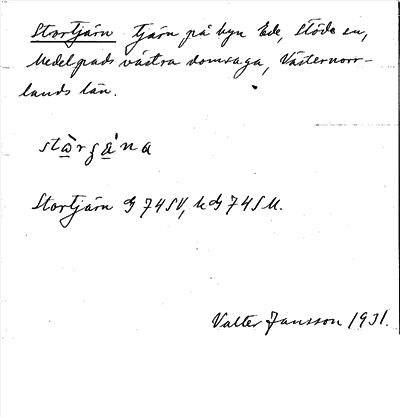 Stortjärn tjärn på byn Ede, Stöde sn,
Medelpads västra domsaga, Västernorr-
lands län.
Stortjärn G 74 SV, k G 74 S M.
Valter Jansson 1931.